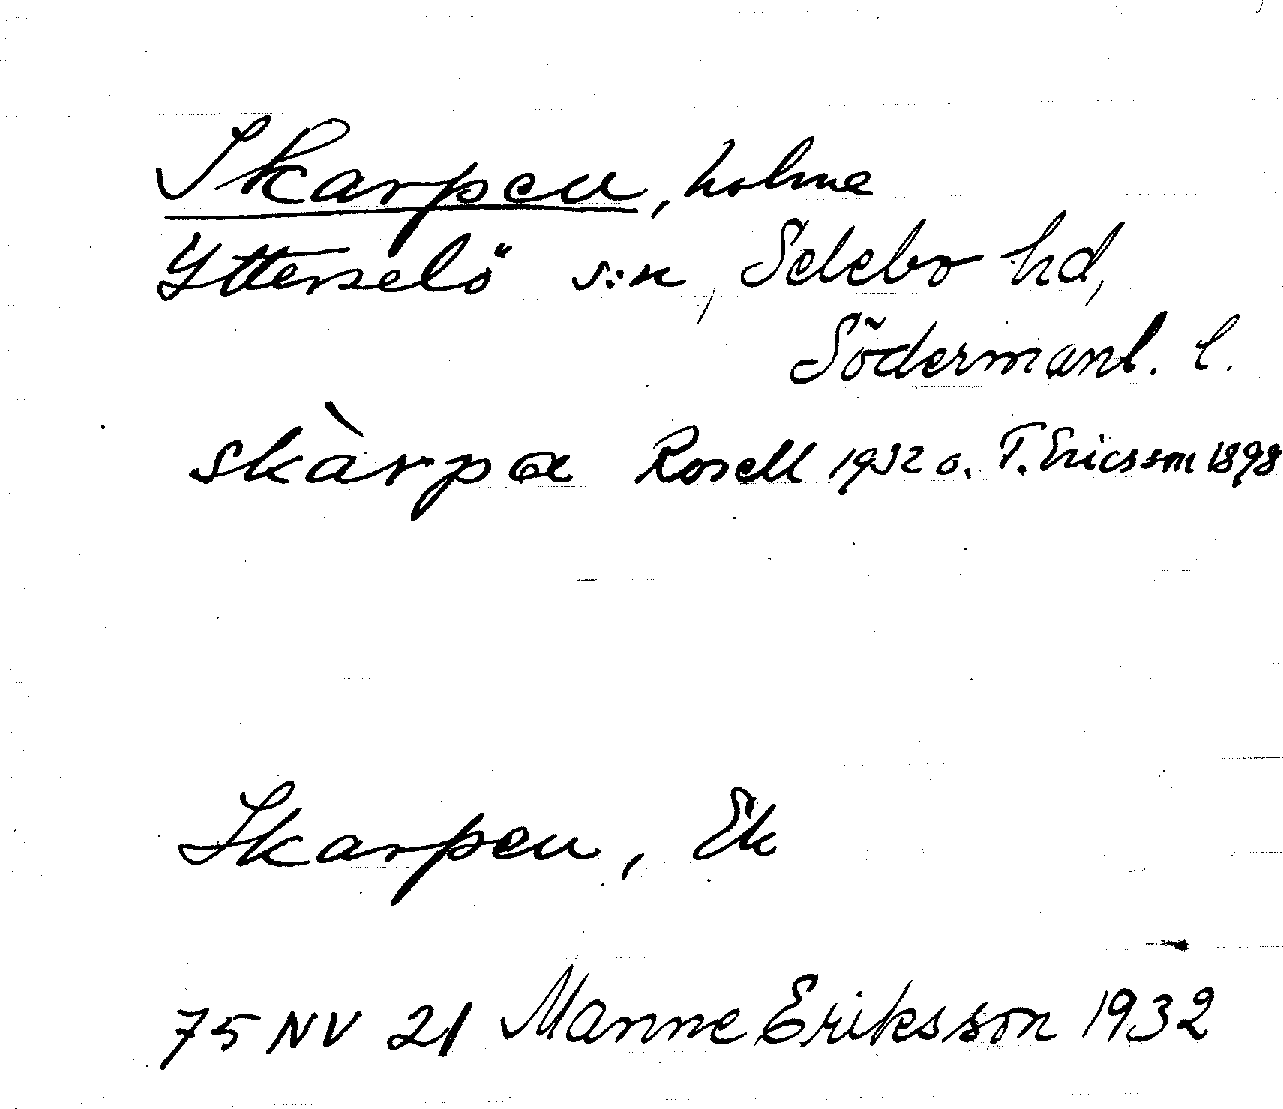 Skarpen, holme
Ytterselö s:n, Selebo hd,
Södermanl. l.
skàrpα Rosell 1932 o. T. Ericsson 1898
Skarpen, Ek
75 NV 21 Manne Eriksson 1932